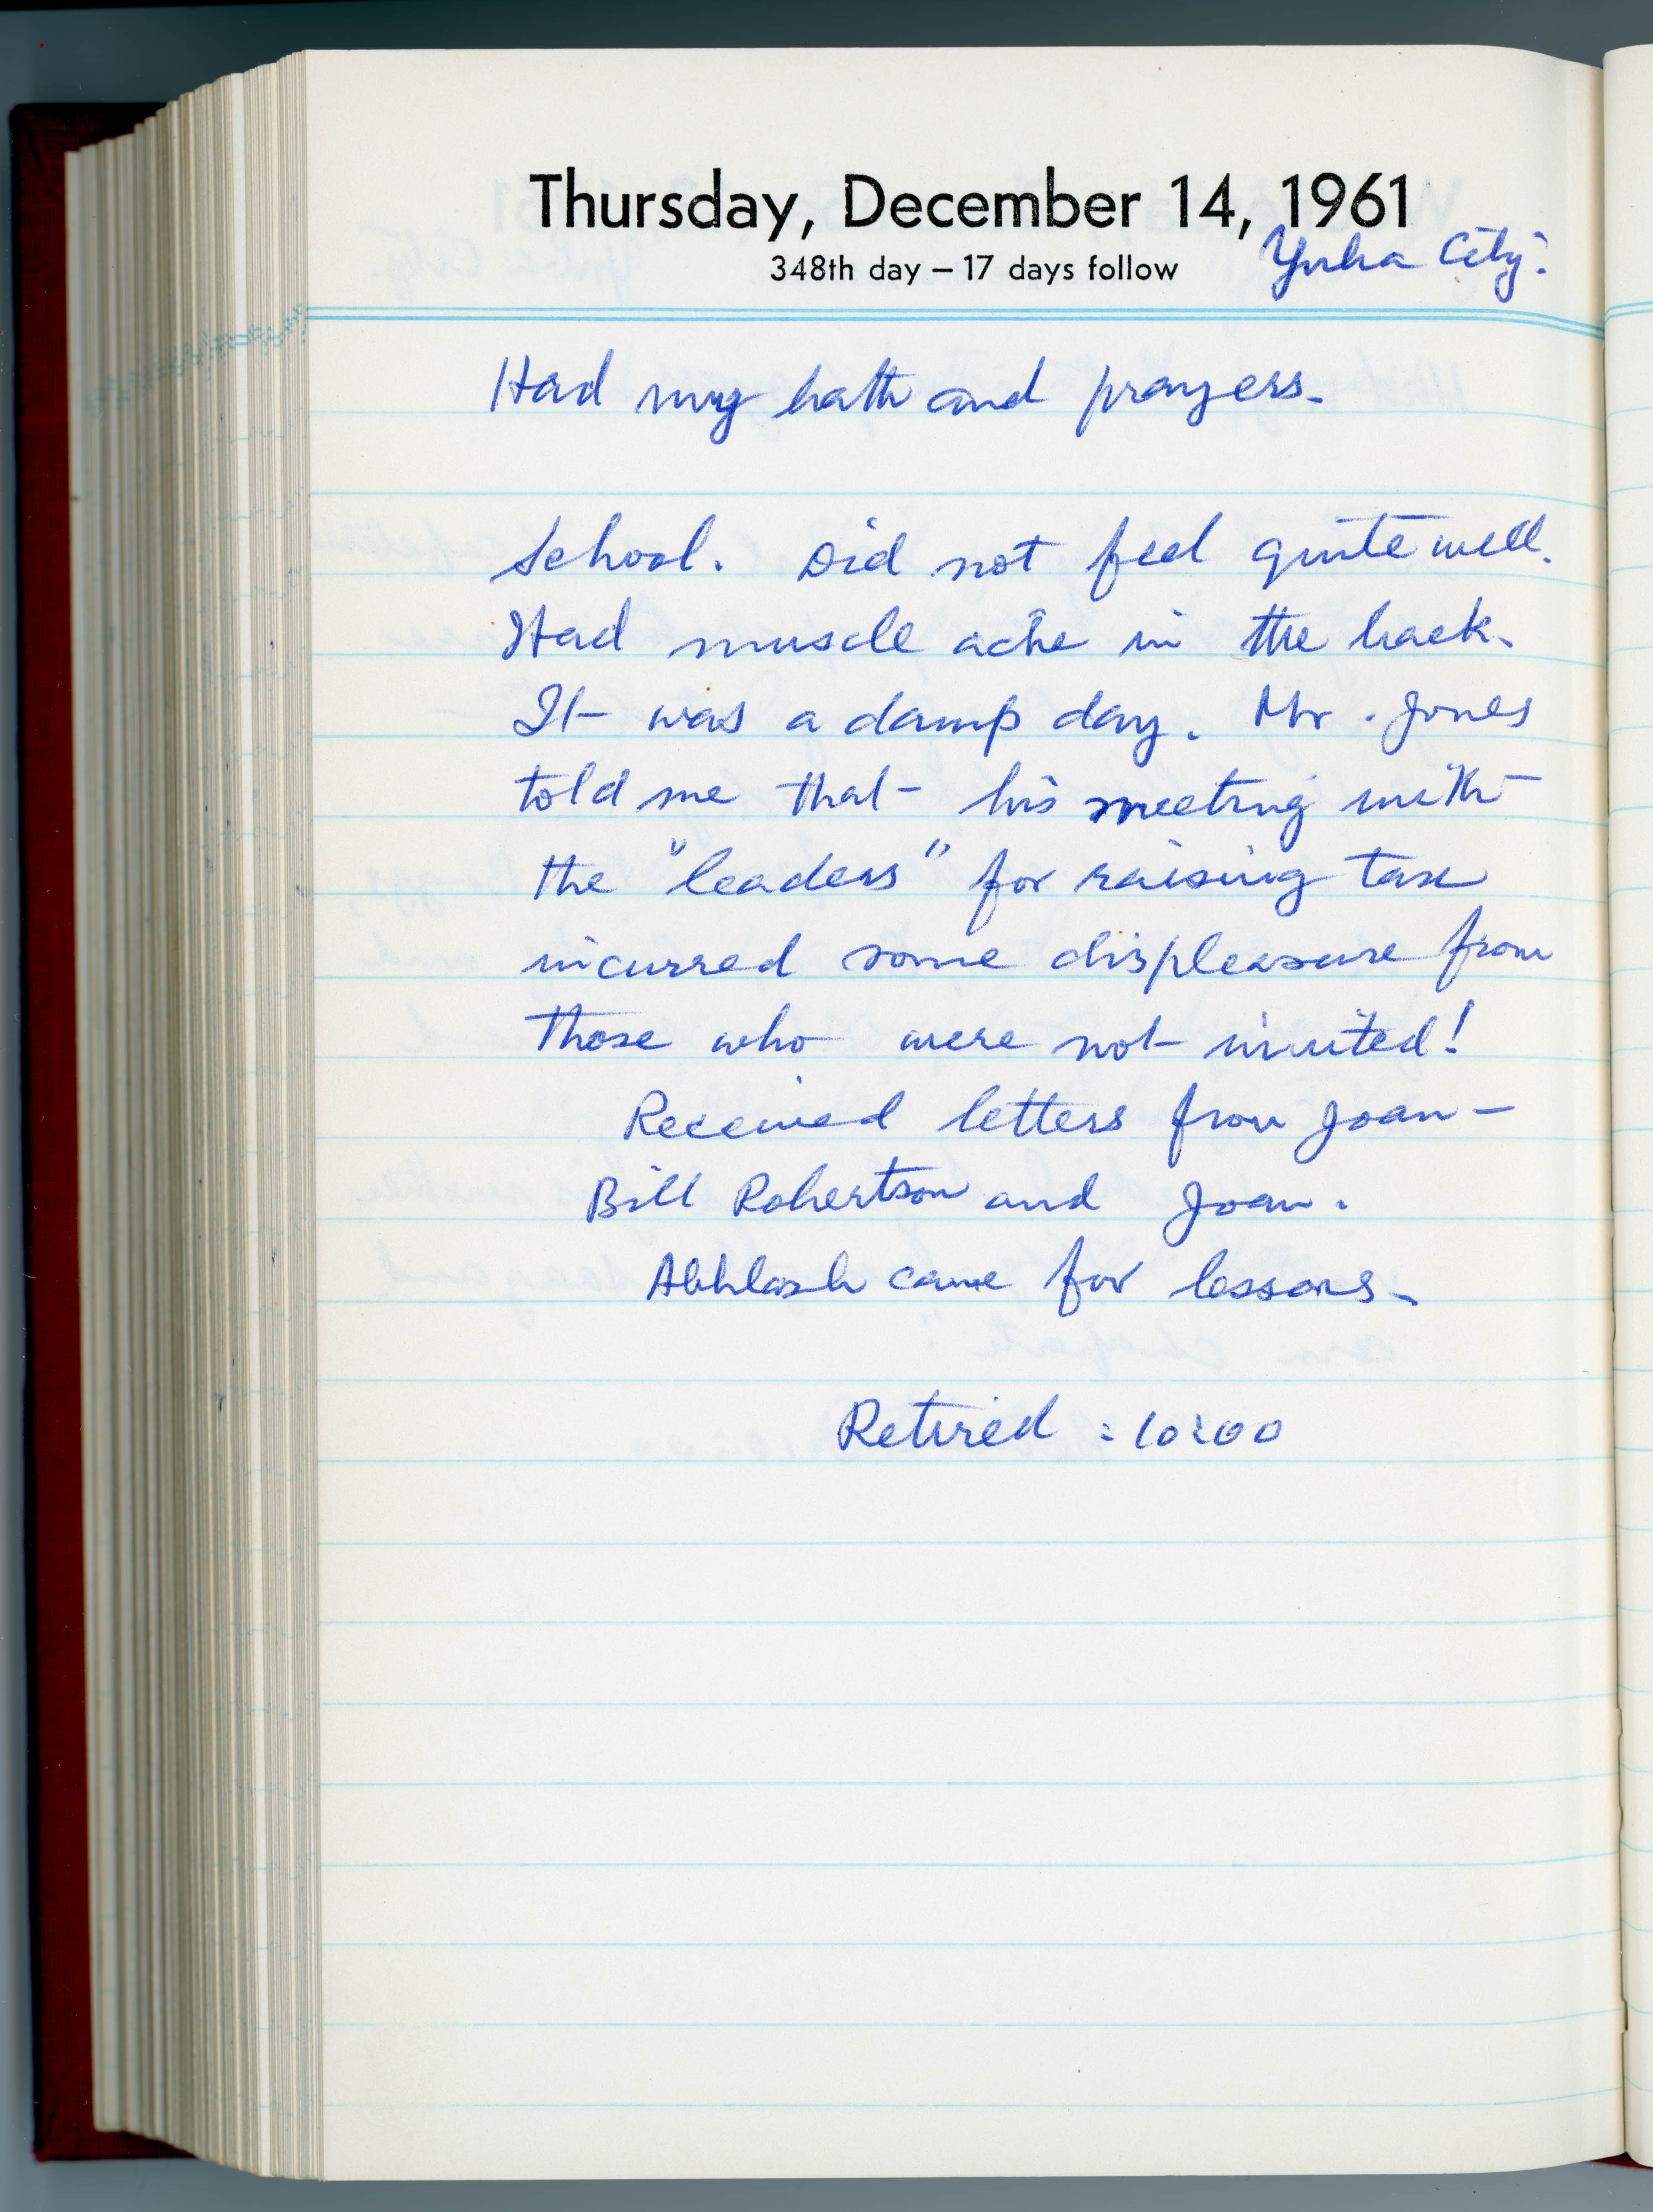 Thursday, December 14, 1961
348th day – 17 days follow
Yuba City.
Had my bath and prayers.
School. Did not feel quite well.
Had muscle ache in the back.
It was a damp day. Mr. Jones
told me that his meeting with
the "leaders" for raising tax
incurred some displeasure from
those who were not invited!
Received letters from Joan –
Bill Robertson and Joan.
came for lessons.
Retired : 10:00